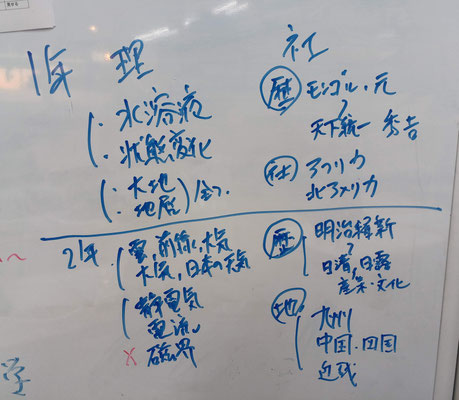 1年 理 社
・水溶液
・状態変化
(・大地
・地層)
歴 モンゴル・元
〜
天下統一 秀吉
アフリカ
北アメリカ
2年
雲,前線,大気
大気,日本の天気
静電気
電流
× 磁界
歴 明治維新
〜
日清,日露
産業・文化
地・
九州
中国・四国
近畿
学